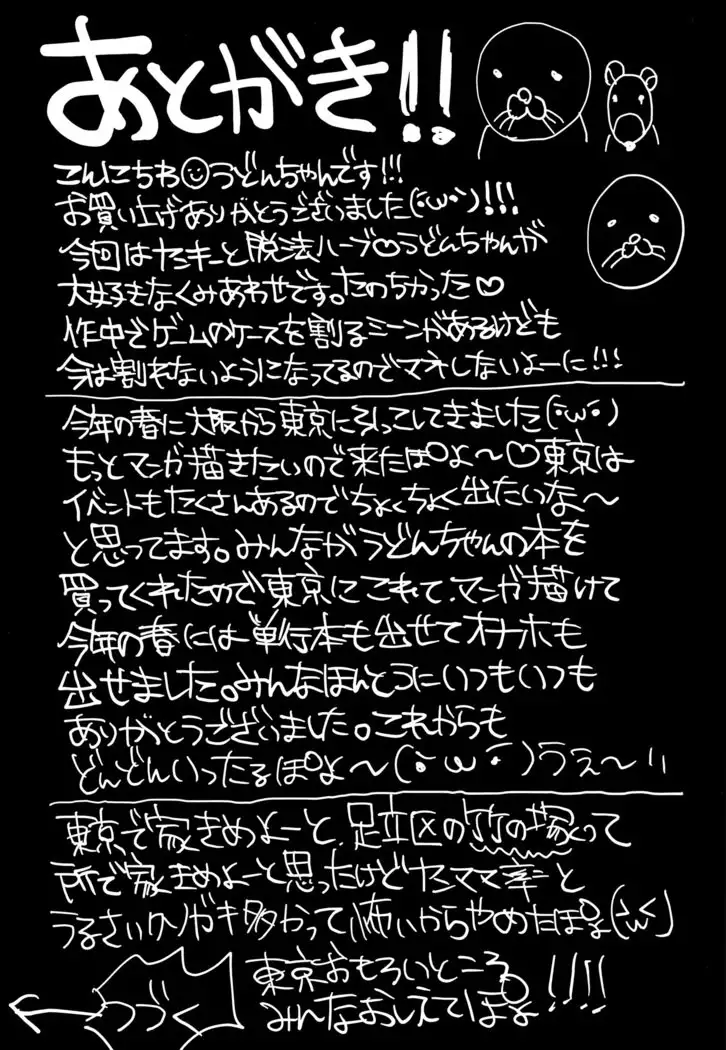 あとがき!!
こんにちわ☺うどんちゃんです!!!
お買い上げありがとうございました(´･ω･`)!!!
今回はヤンキーと脱法ハーブ♡うどんちゃんが
大好きなくみあわせです。たのちかった♡
作中でゲームのケースを割るシーンがあるけども
今は割れないようになってるのでマネしないよーに!!!
今年の春に大阪から東京に引っこしてきました(´･ω･`)
もっとマンガ描きたいので来たぽよ〜♡東京は
イベントもたくさんあるのでちょくちょく出たいな〜
と思ってます。みんながうどんちゃんの本を
買ってくれたので東京にこれて、マンガ描けて
今年の春には単行本も出せてオナホも
出せました。みんなほんとうにいつもいつも
ありがとうございました。これからも
どんどんいったるぽよ〜(´･ω･`)うぇ〜い
東京で家きめよーと、足立区の竹の塚って
所で家きめよーと思ったけどヤンママ率と
うるさいクソガキ多かって怖いからやめたぽよ(´ω`)
東京おもろいところ
みんなおしえてぽよ!!!!
つづく